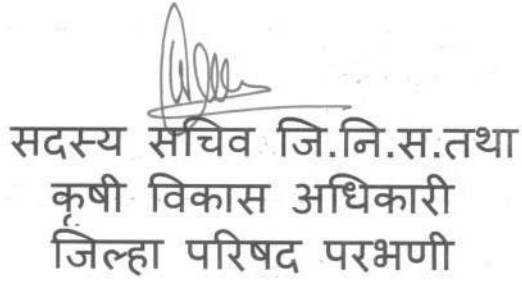 सदस्य सचिव जि.नि.स.तथा
कृषी विकास अधिकारी
जिल्हा परिषद परभणी